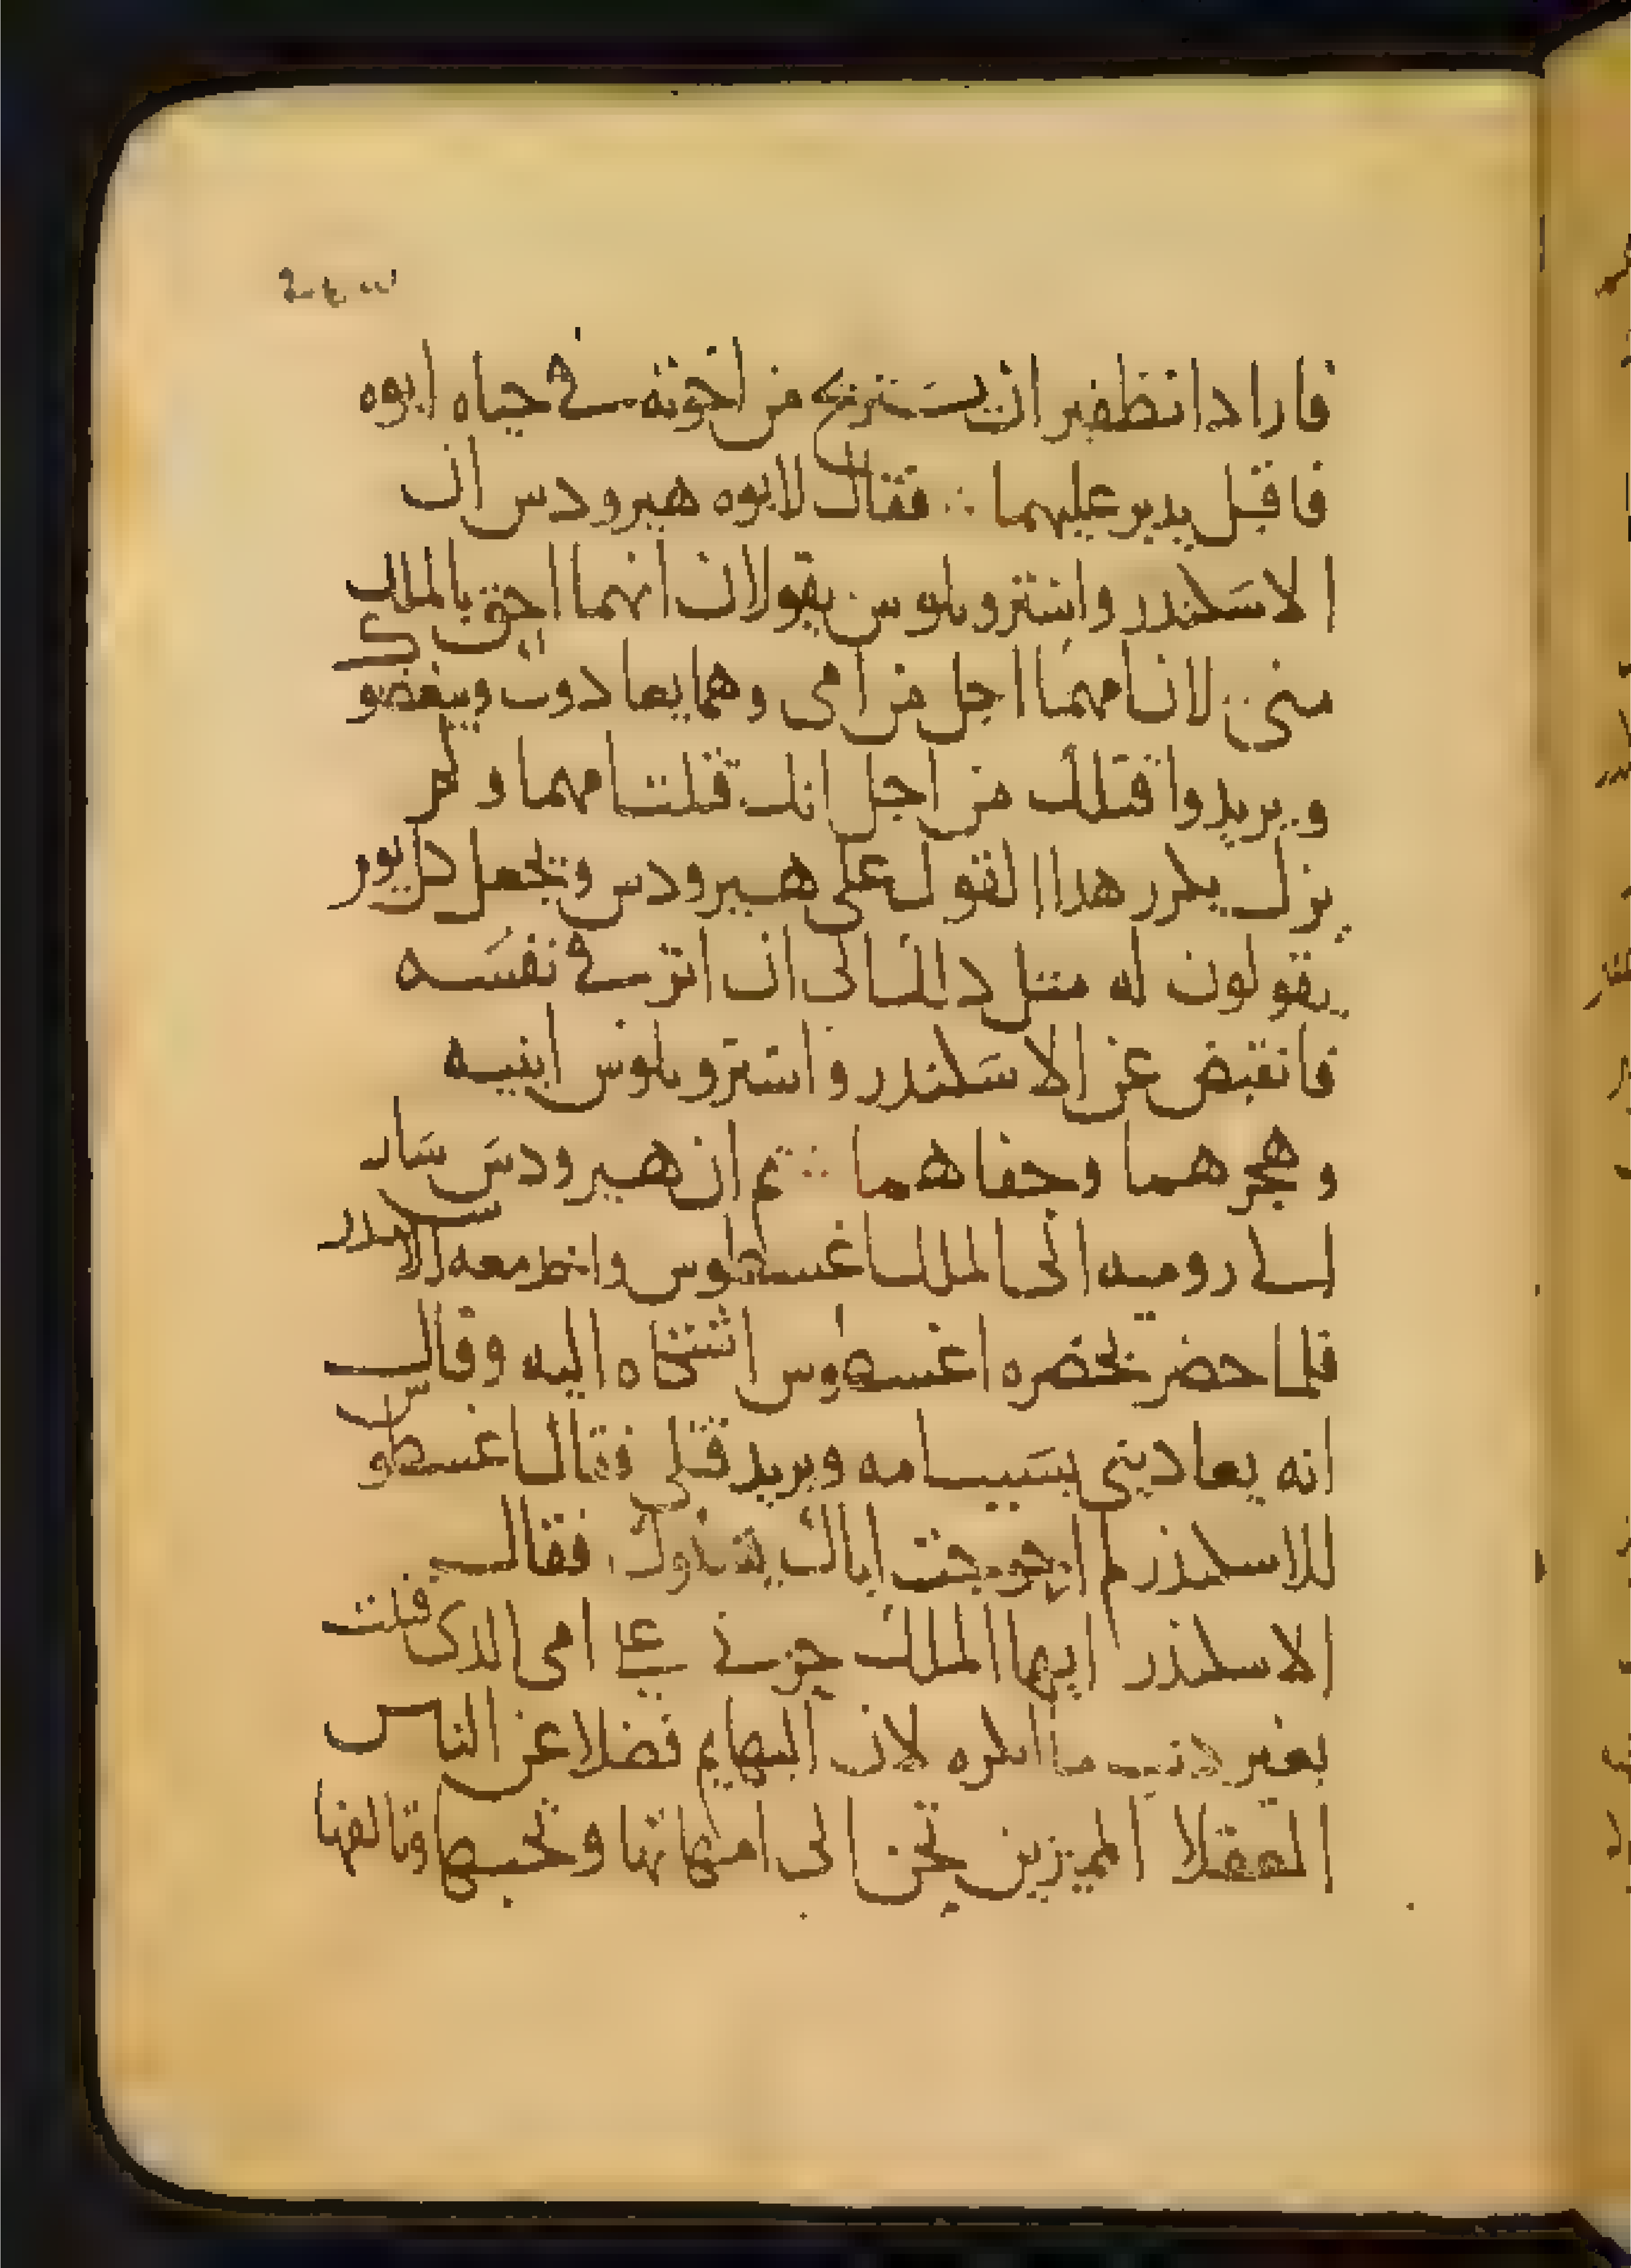 فاراد انتظفير ان يستريح من اخوته في حياه ابوه
فاقبل يدبر عليهما ∴ فقال لابوه هيرودس ان
الاسكندر وانتتروبلوس يقولان انهما احق بالملك
مني لان امهما اجل من امي وهما يعادوك ويبغضوك
ويريدوا قتلك من اجل انك قتلت امهما ولم
يزل يكرر هدا القول على هيرودس ويجعل كل يوم
يقولون له متل دلك الى ان اتر في نفسه
فانقبض عن الاسكندر واستروبلوس ابنيه
وهجرهما وجفاهما ∴ تم ان هيرودس سار
الى روميه الى الملك اغسطوس واخد معه الاسكندر
فلما حضر بحضره اغسطوس اشتكاه اليه وقال
انه يعاديني بسبب امه ويريد قتلي فقال اغسطوس
للاسكندر لم احوجت اباك يشكوك فقال
الاسكندر ايها الملك حزني على امي الدي قتلت
بغير دنب ما انكره لان البهايم فضلا عن الناس
العقلا المميزين تحن الى امهاتها وتحبها وتالفها